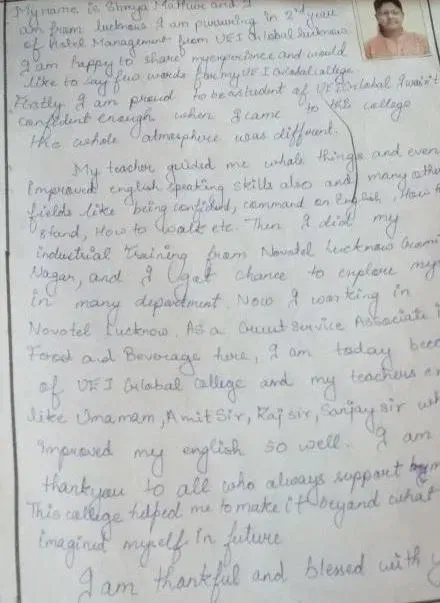 My name is Shreya Mathur and I
am from lucknow I am pursuing in 2nd year
of Hotel Management from UEI Global lucknow
I am happy to share my experience and would
like to say few words for my UEI Global college
Firstly I am proud to be a student of UEI Global I wasn't
confident enough when I came to this college
the whole atmosphere was different.
My teacher guided me whole things and even
Improved english speaking skills also and many other
fields like being confident, command on English, How to
stand, How to walk etc. Then I did my
industrial training from Novotel Lucknow Gomti
Nagar, and I got chance to explore my
in many department. Now I working in
Novotel Lucknow. As a Guest Service Associate
Food and Beverage here, I am today
of UEI Global college and my teachers
like Uma mam, Amit Sir, Raj sir, Sanjay sir
Improved my english so well. I am
thankyou to all who always support
This college helped me to make it beyond what
imagined myself in future
I am thankful and blessed with